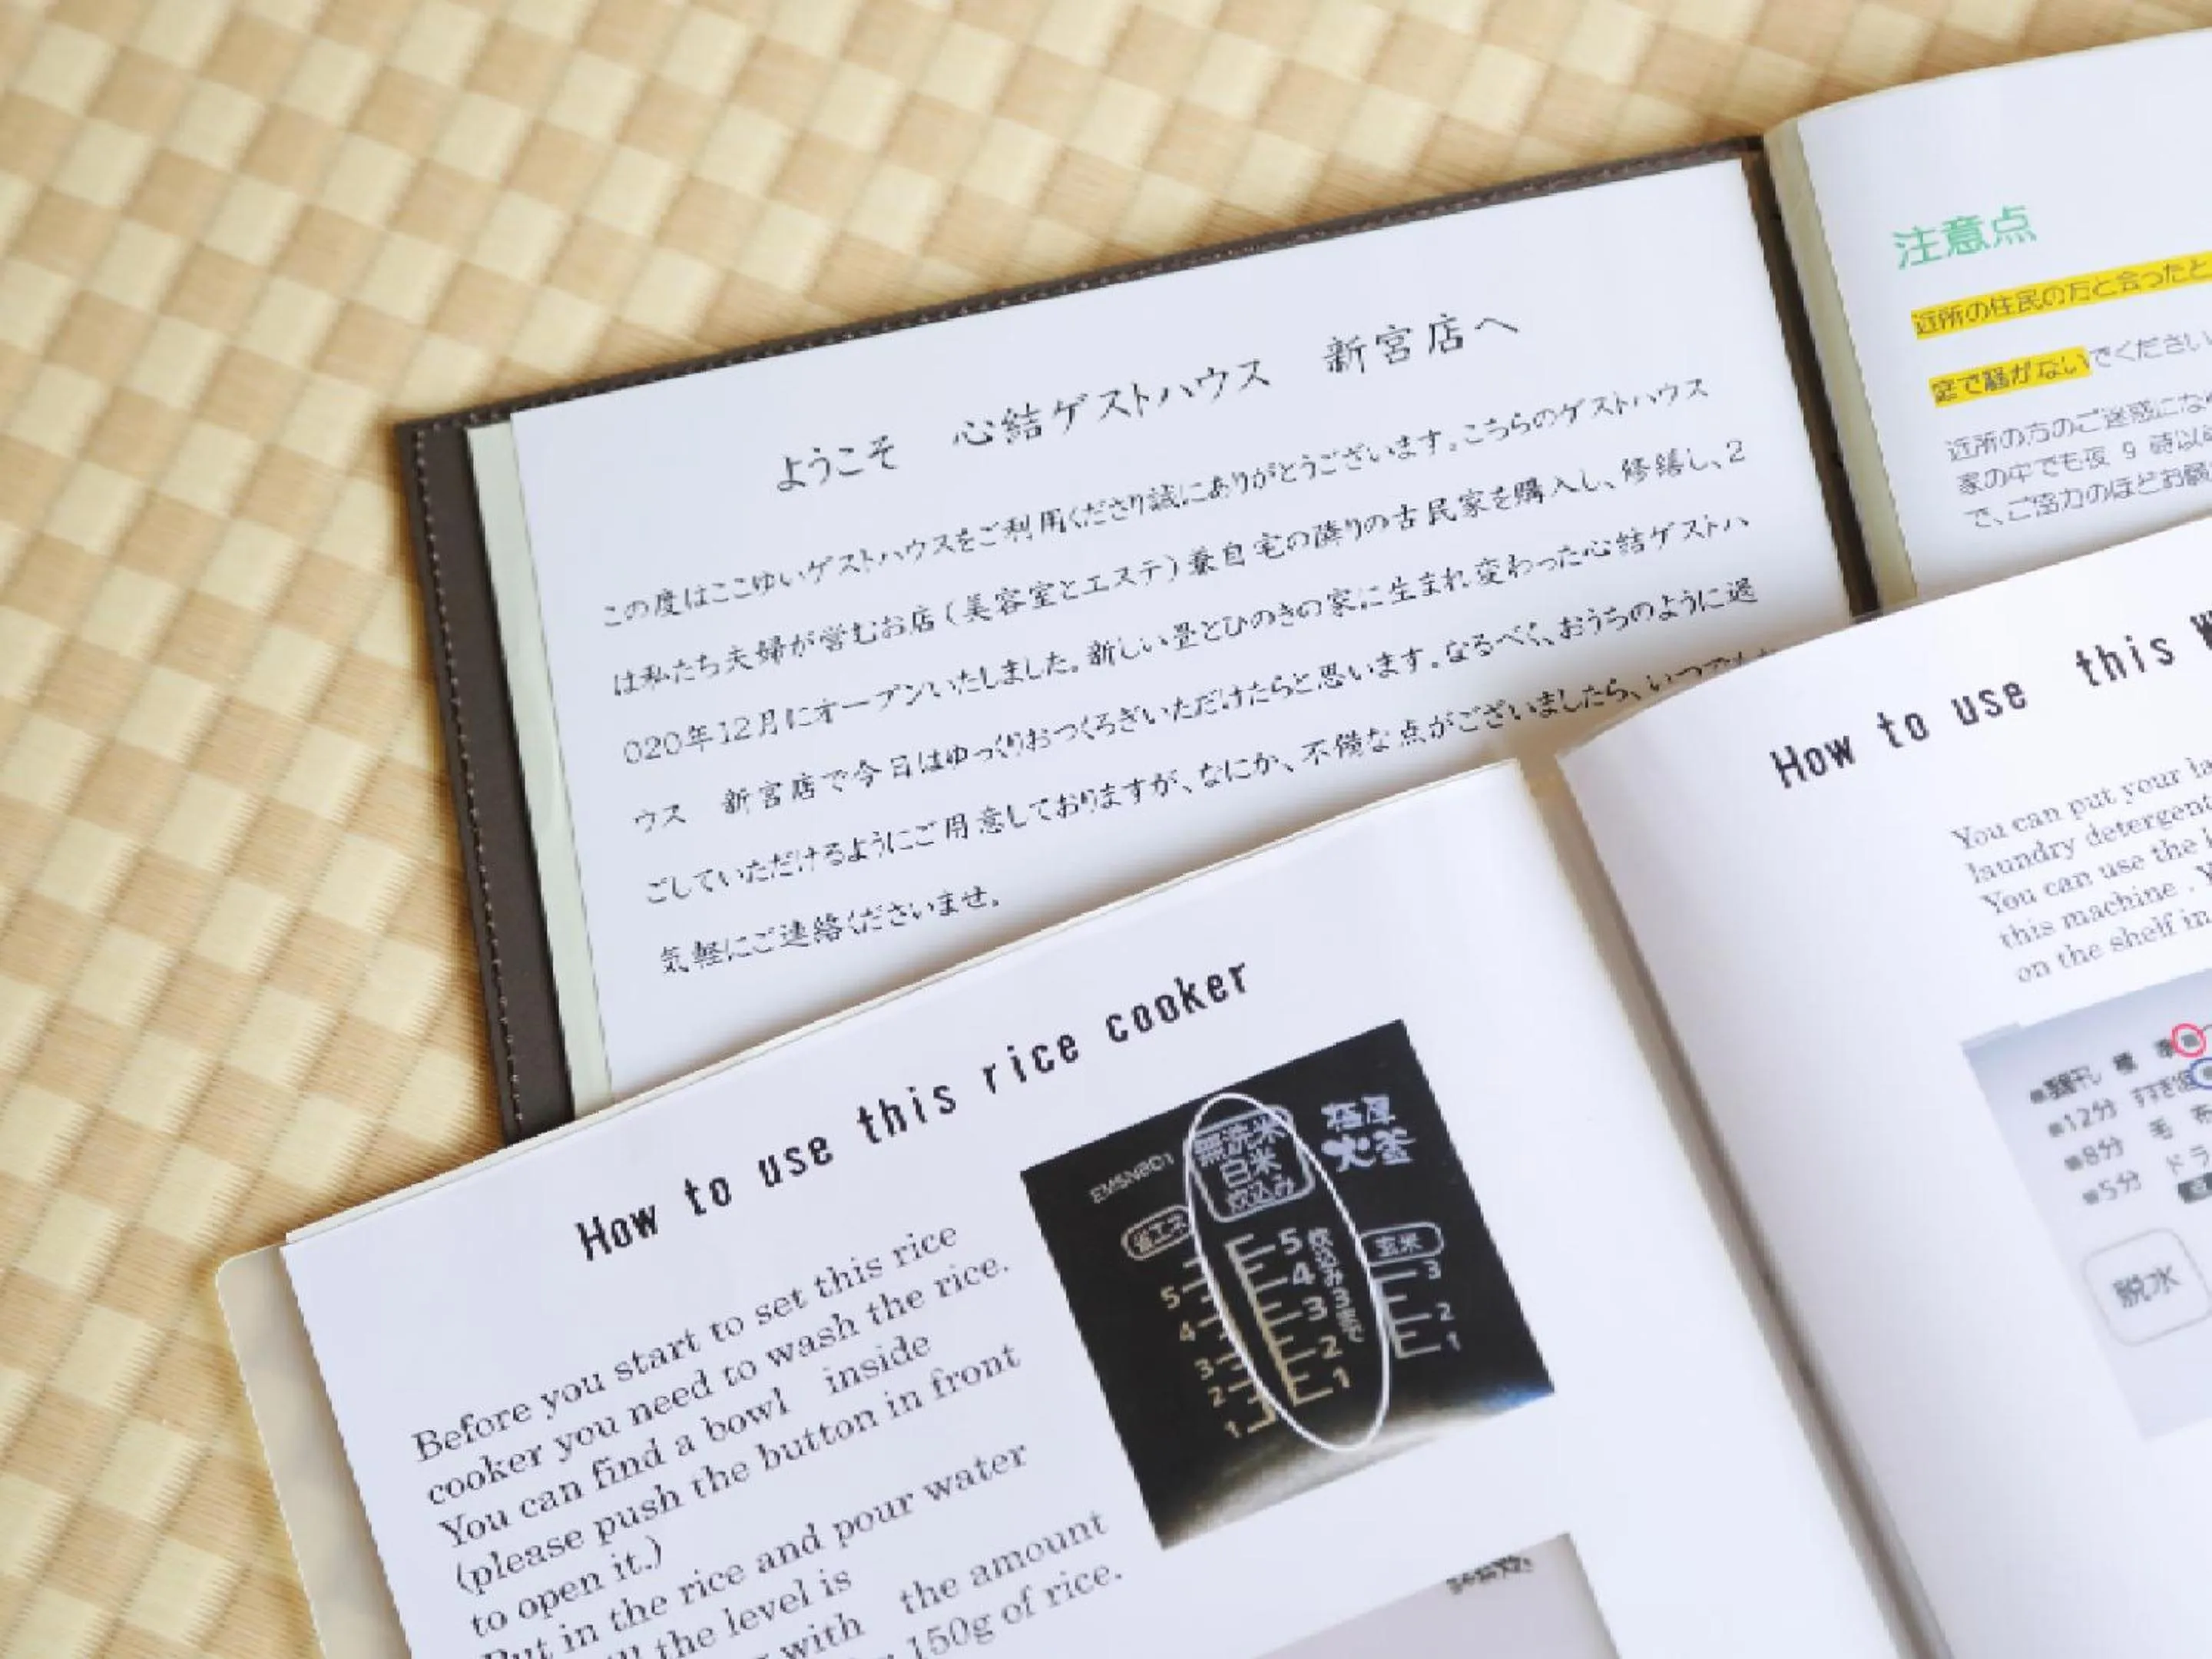 ようこそ 心結ゲストハウス 新宮店へ
この度はここゆいゲストハウスをご利用くださり誠にありがとうございます。こちらのゲストハウス
は私たち夫婦が営むお店(美容室とエステ)兼自宅の隣りの古民家を購入し、修繕し、2
020年12月にオープンいたしました。新しい畳とひのきの家に生まれ変わった心結ゲストハ
ウス 新宮店で今日はゆっくりおつくろぎいただけたらと思います。なるべく、おうちのように過
ごしていただけるようにご用意しておりますが、なにか、不備な点がございましたら、いつでも
気軽にご連絡くださいませ。
注意点
近所の住民の方と会ったと
で騒がないでください
近所の方のご迷惑にな
家の中でも夜 9 時以
で、ご協力のほどお願
How to use this rice cooker
Before you start to set this rice
cooker you need to wash the rice.
You can find a bowl inside
(please push the button in front
to open it.)
Put in the rice and pour water
the level is
with the amount
150g of rice.
極厚
火釜
無洗米
白米
炊込み
5
4
3
2
1
玄米
3
2
1
5
4
3
2
1
How to use this
You can put your la
laundry detergent
You can use the
this machine .
on the shelf in
12分 すすぎ
8分 毛布
5分 ドラ
脱水